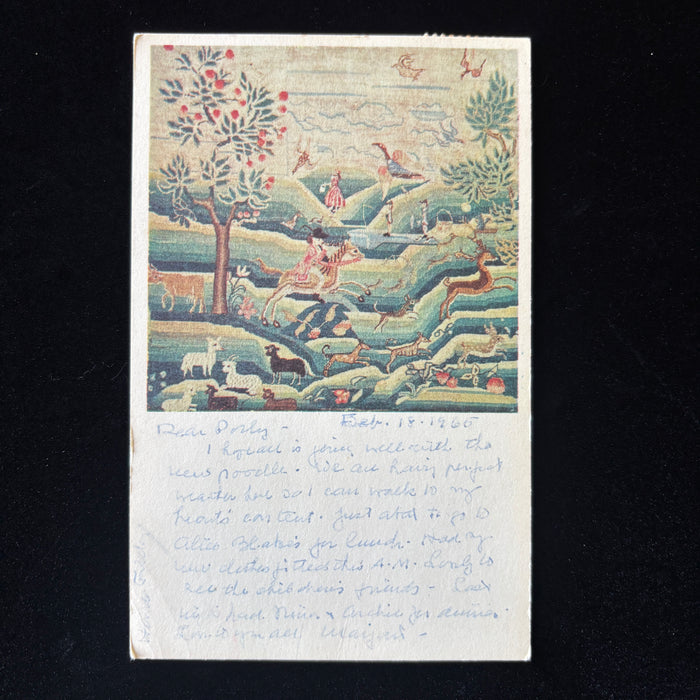 Dear Dolly - Feb. 18 - 1965
I hope all is going well with the
new poodle. We are having perfect
weather here so I can walk to my
heart's content. Just about to go to
Alice Blake's for lunch. Had my
new clothes fitted this A.M. Lovely to
see the children's friends - Last
night had Nina & Archie for dinner.
Love to you all